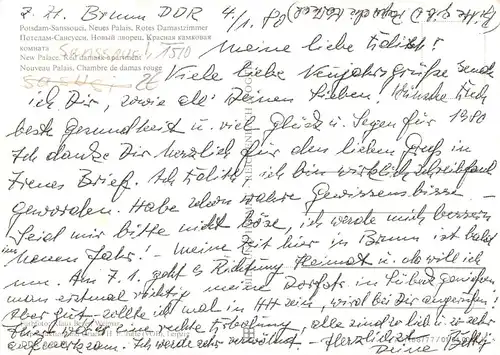 z. Zt. Brunn DDR 4/1 80
Potsdam-Sanssouci, Neues Palais, Rotes Damastzimmer
Потсдам-Сансуси, Новый дворец, Красная камковая
комната
New Palace, Red damask-apartment
Nouveau Palais, Chambre de damas rouge
Meine liebe
Viele liebe Neujahrsgrüße sende
ich Dir, sowie all' Deinen Lieben. Wünsche Euch
beste Gesundheit u. viel Glück u. Segen für 1980
Ich danke Dir herzlich für den lieben Gruß in
Ich bin wirklich schreibfaul
geworden. Habe schon wahre Gewissensbisse.
Seid mir bitte nicht böse, ich werde mich bessern
im Neuen Jahr! - Meine Zeit hier in Brunn ist bald
um. Am 7.1. geht's Richtung Heimat u. da will ich
man erstmal richtig meine
Aber gut - sollte ich mal in HH sein, wird bei Dir angerufen!
Hier war eine echte Erholung, alle sind so lieb u.
aufmerksam. Ich werde sehr verwöhnt - Herzlichst
Deine